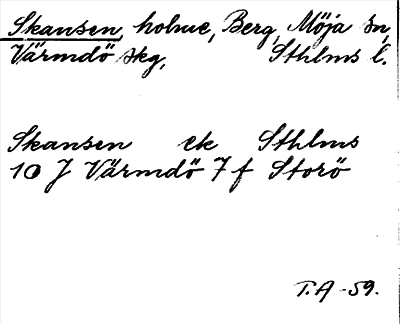 Skansen, holme, Berg, Möja sn,
Värmdö skg, Sthlms l.
Skansen ek Sthlms
10 J Värmdö 7 f Storö
T.A -59.